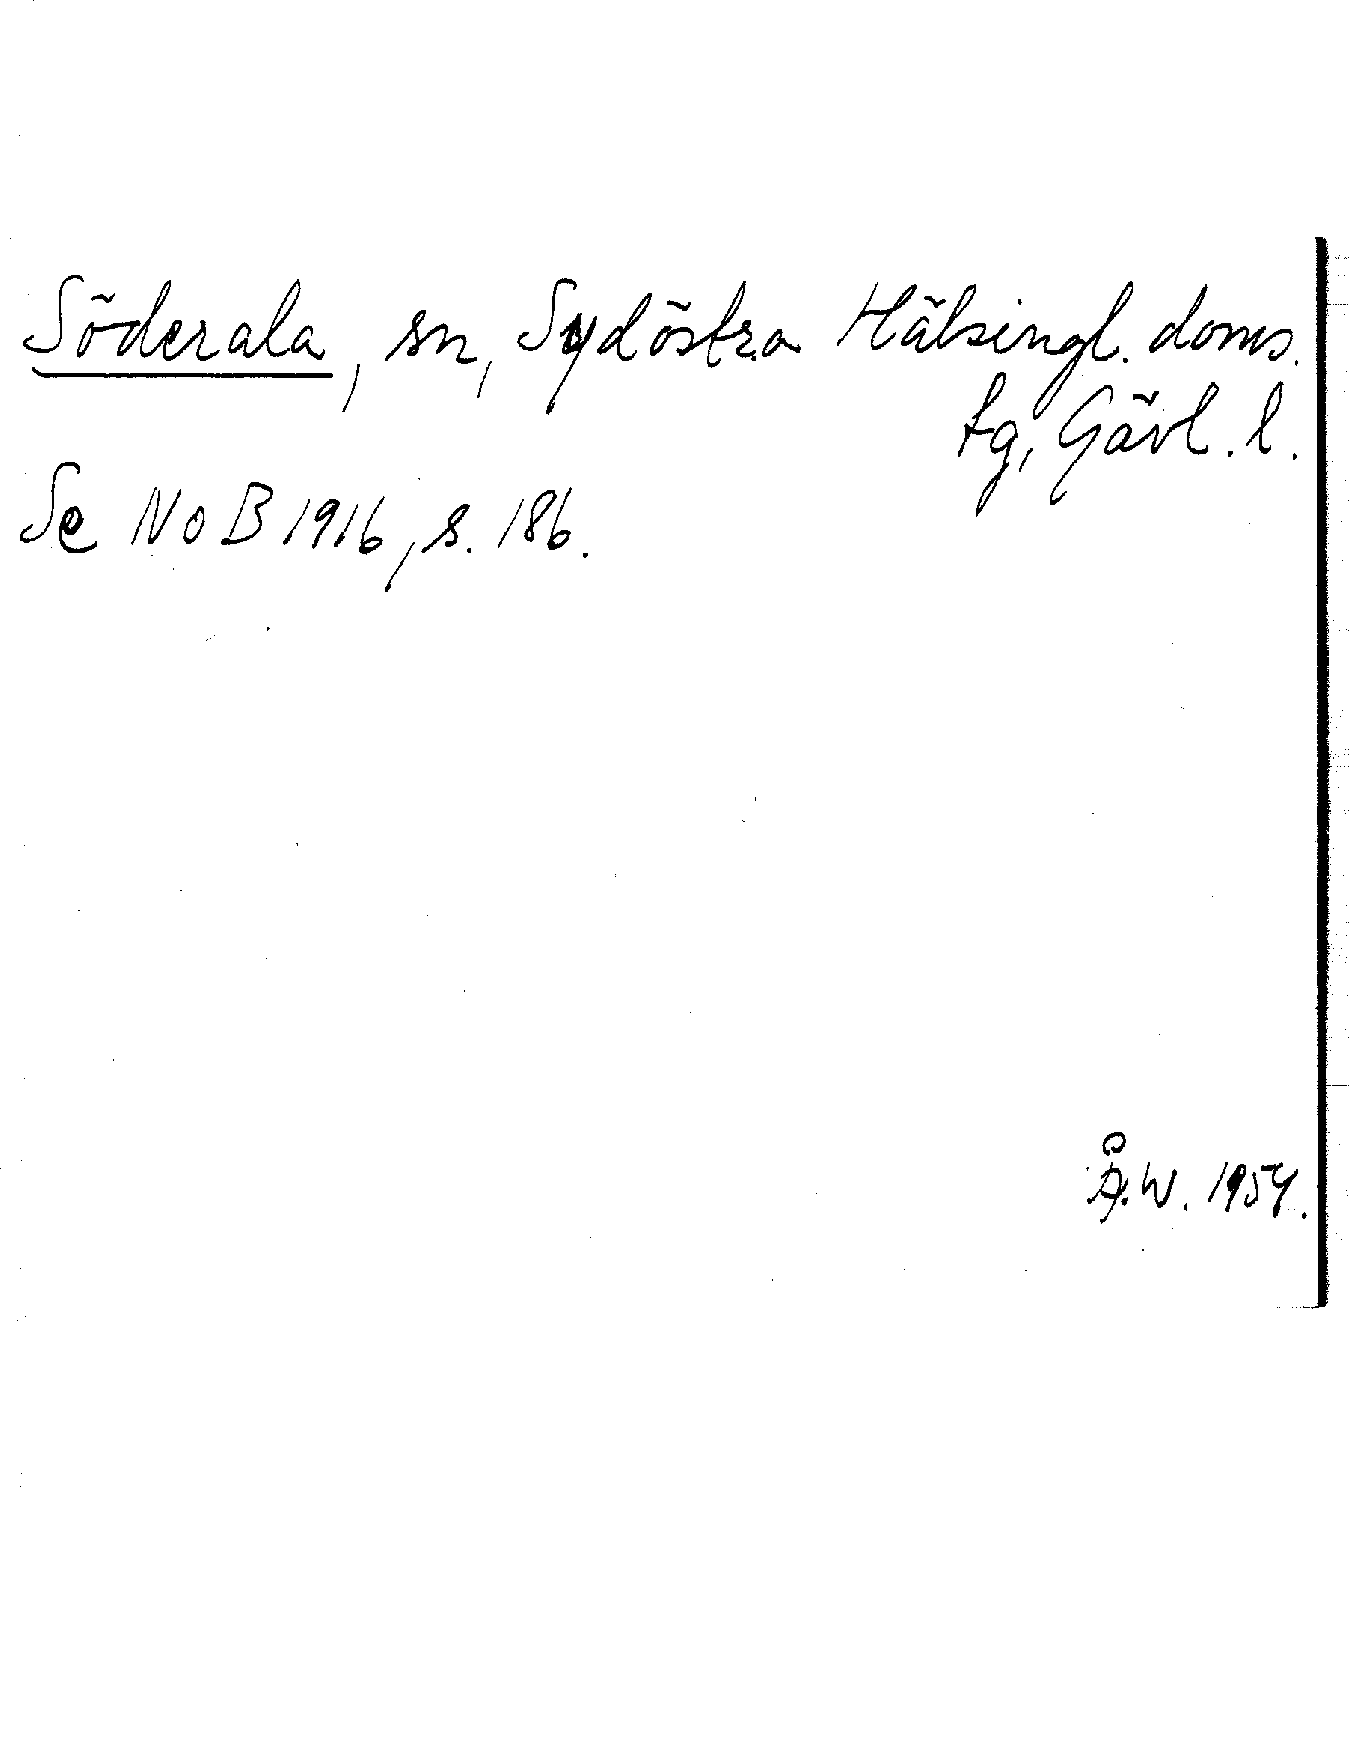 Söderala, sn, Sydöstra Hälsingl. doms.
tg, Gävl. l.
Se NoB 1916, s. 186.
Å.W. 1954.